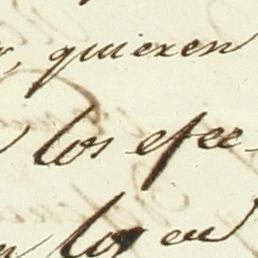 quieren
los efec-
los en